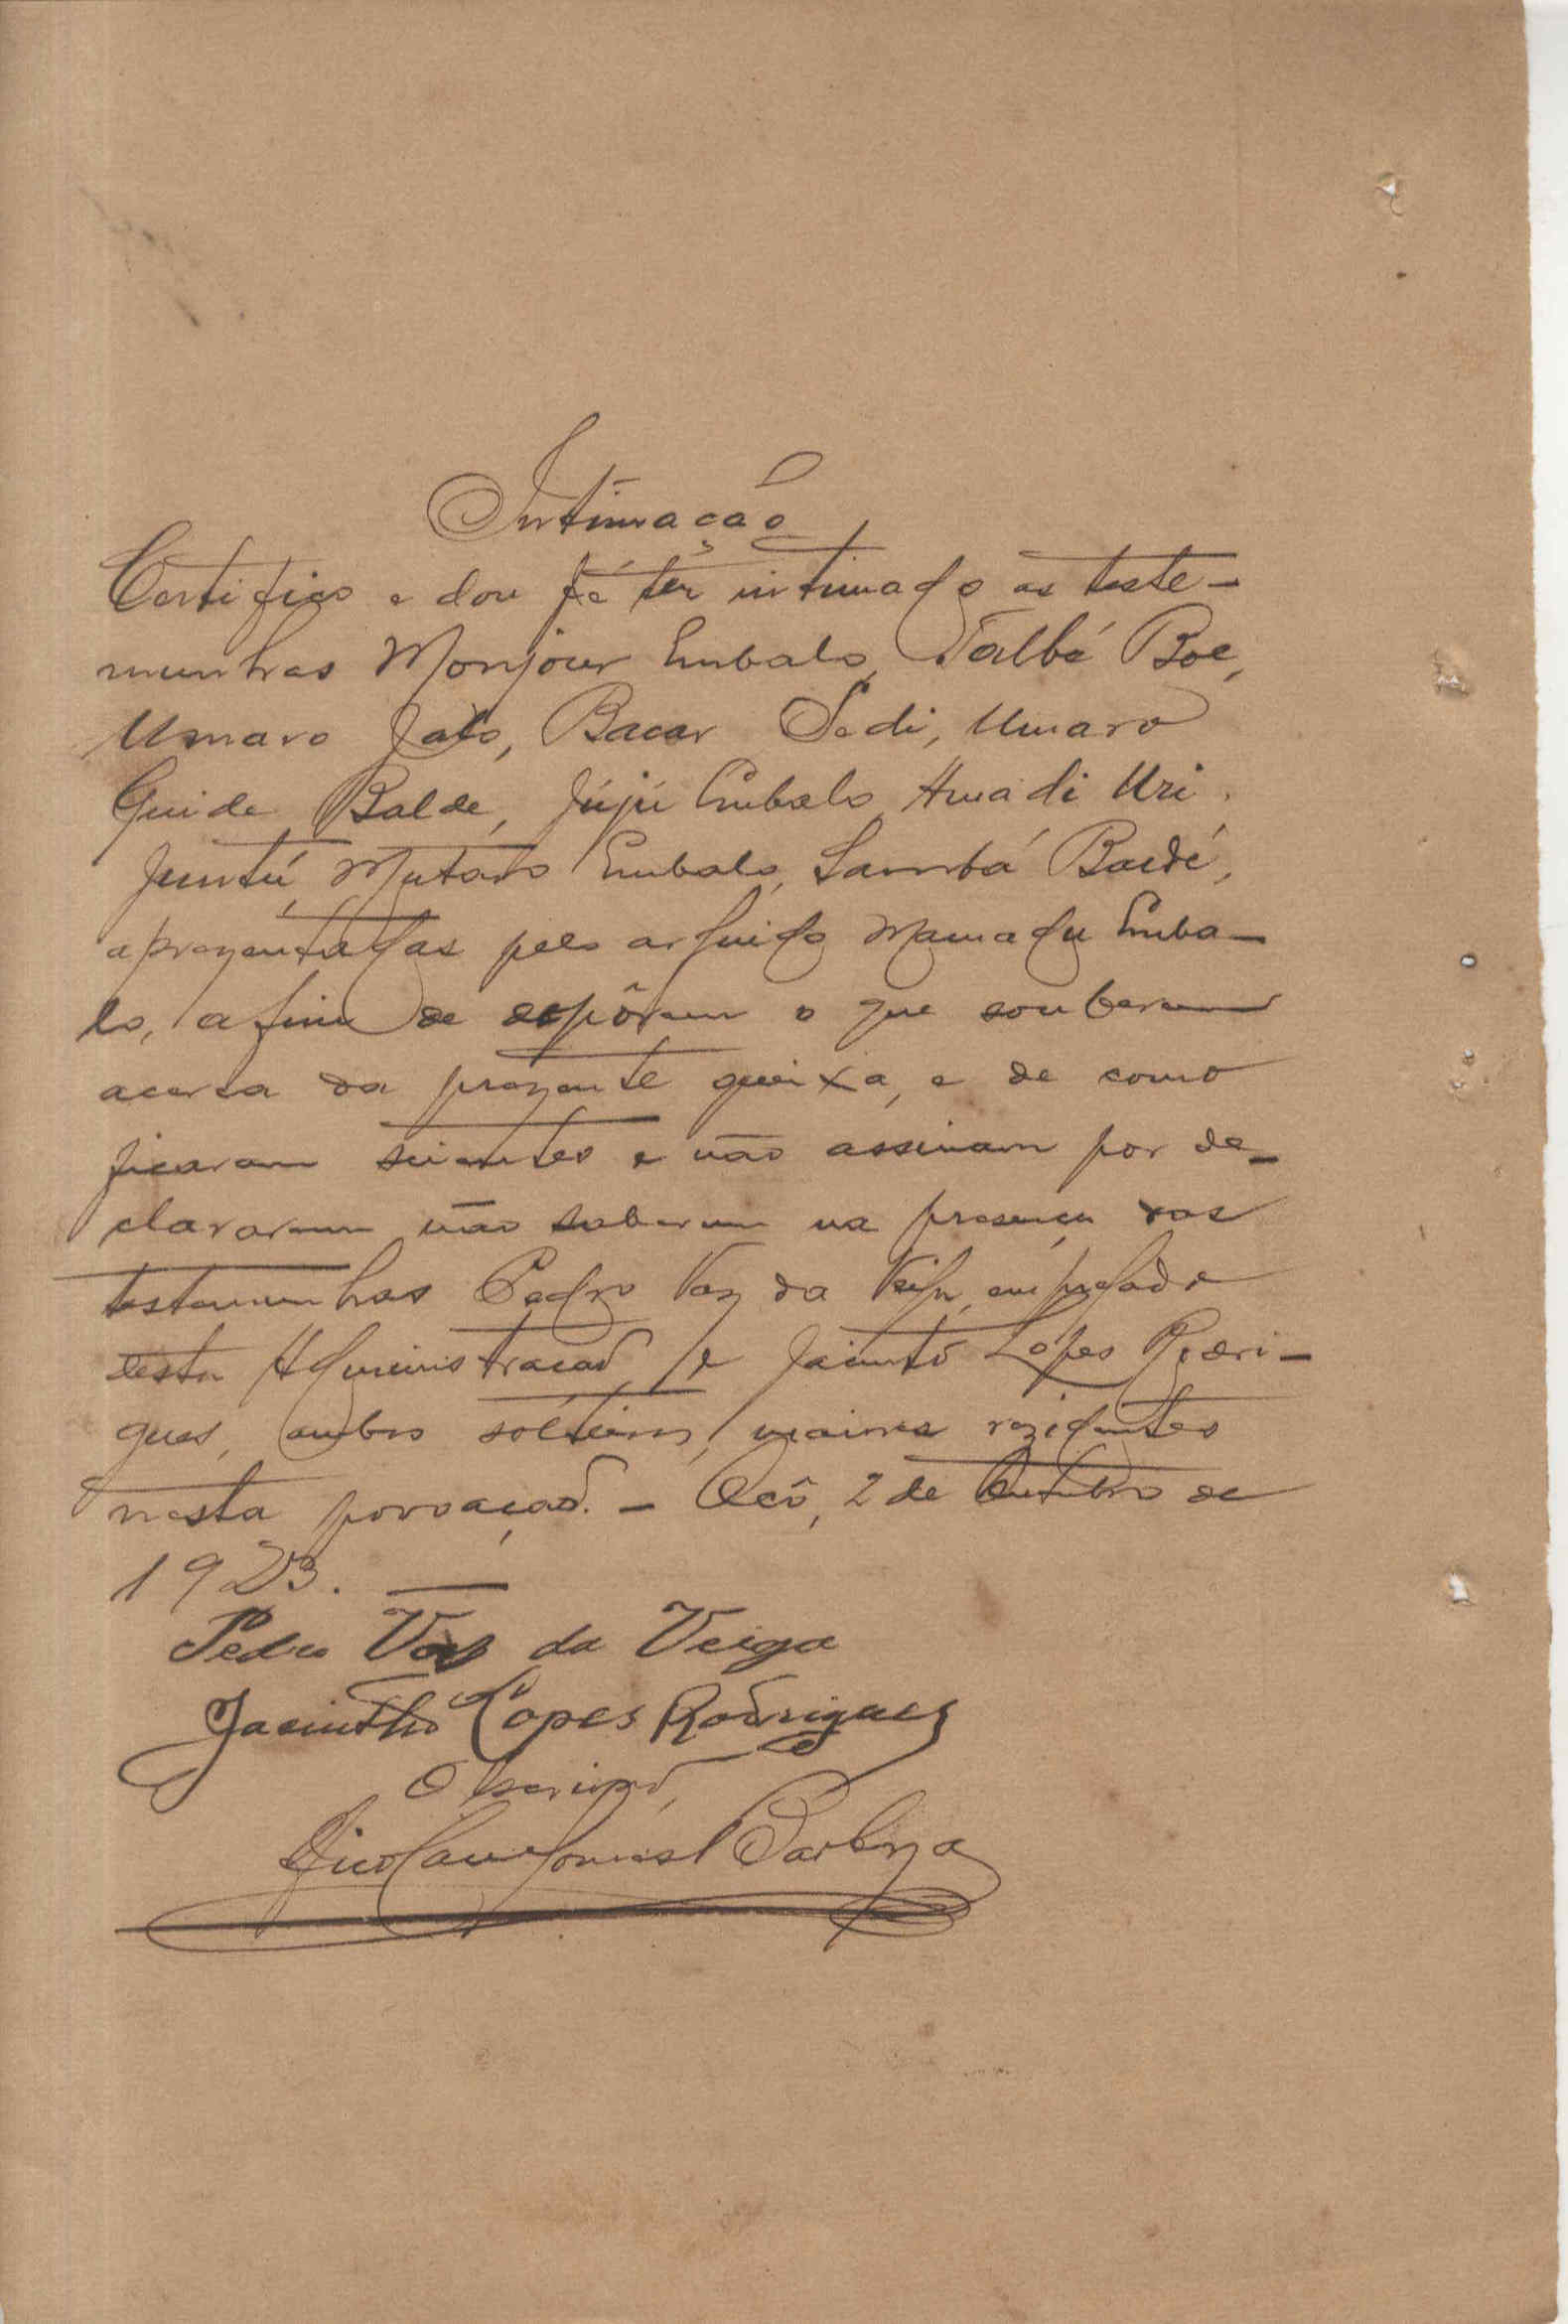 Intimação
Certifico e dou fé ter intimado as teste-
munhas Monjour Embalo, Talbé Boe,
Umaro Jalo, Bacar Sedi, Umaro
Guide Balde, Jújú Embalo, Amadi Uri,
Juntú, Mutaro Embalo, Sambá Baldé,
aprezentadas pelo arguido Mamadu Emba-
lo, afim de depôrem o que souberem
acerca da prezente queixa, e de como
ficaram scientes e não assinam por de-
clararem não saberem na presença das
testemunhas Pedro Vaz da Veiga, empregado
desta Administracaõ, e Jacinto Lopes Rodri-
gues, ambos solteiros, maiores rezidentes
nesta povoaçaõ. - Ocô, 2 de Outubro de
1923. —
Pedro Vaz da Veiga
Jacintho Lopes Rodrigues
O Escrivaõ,
Nicolau Gomes Barboza